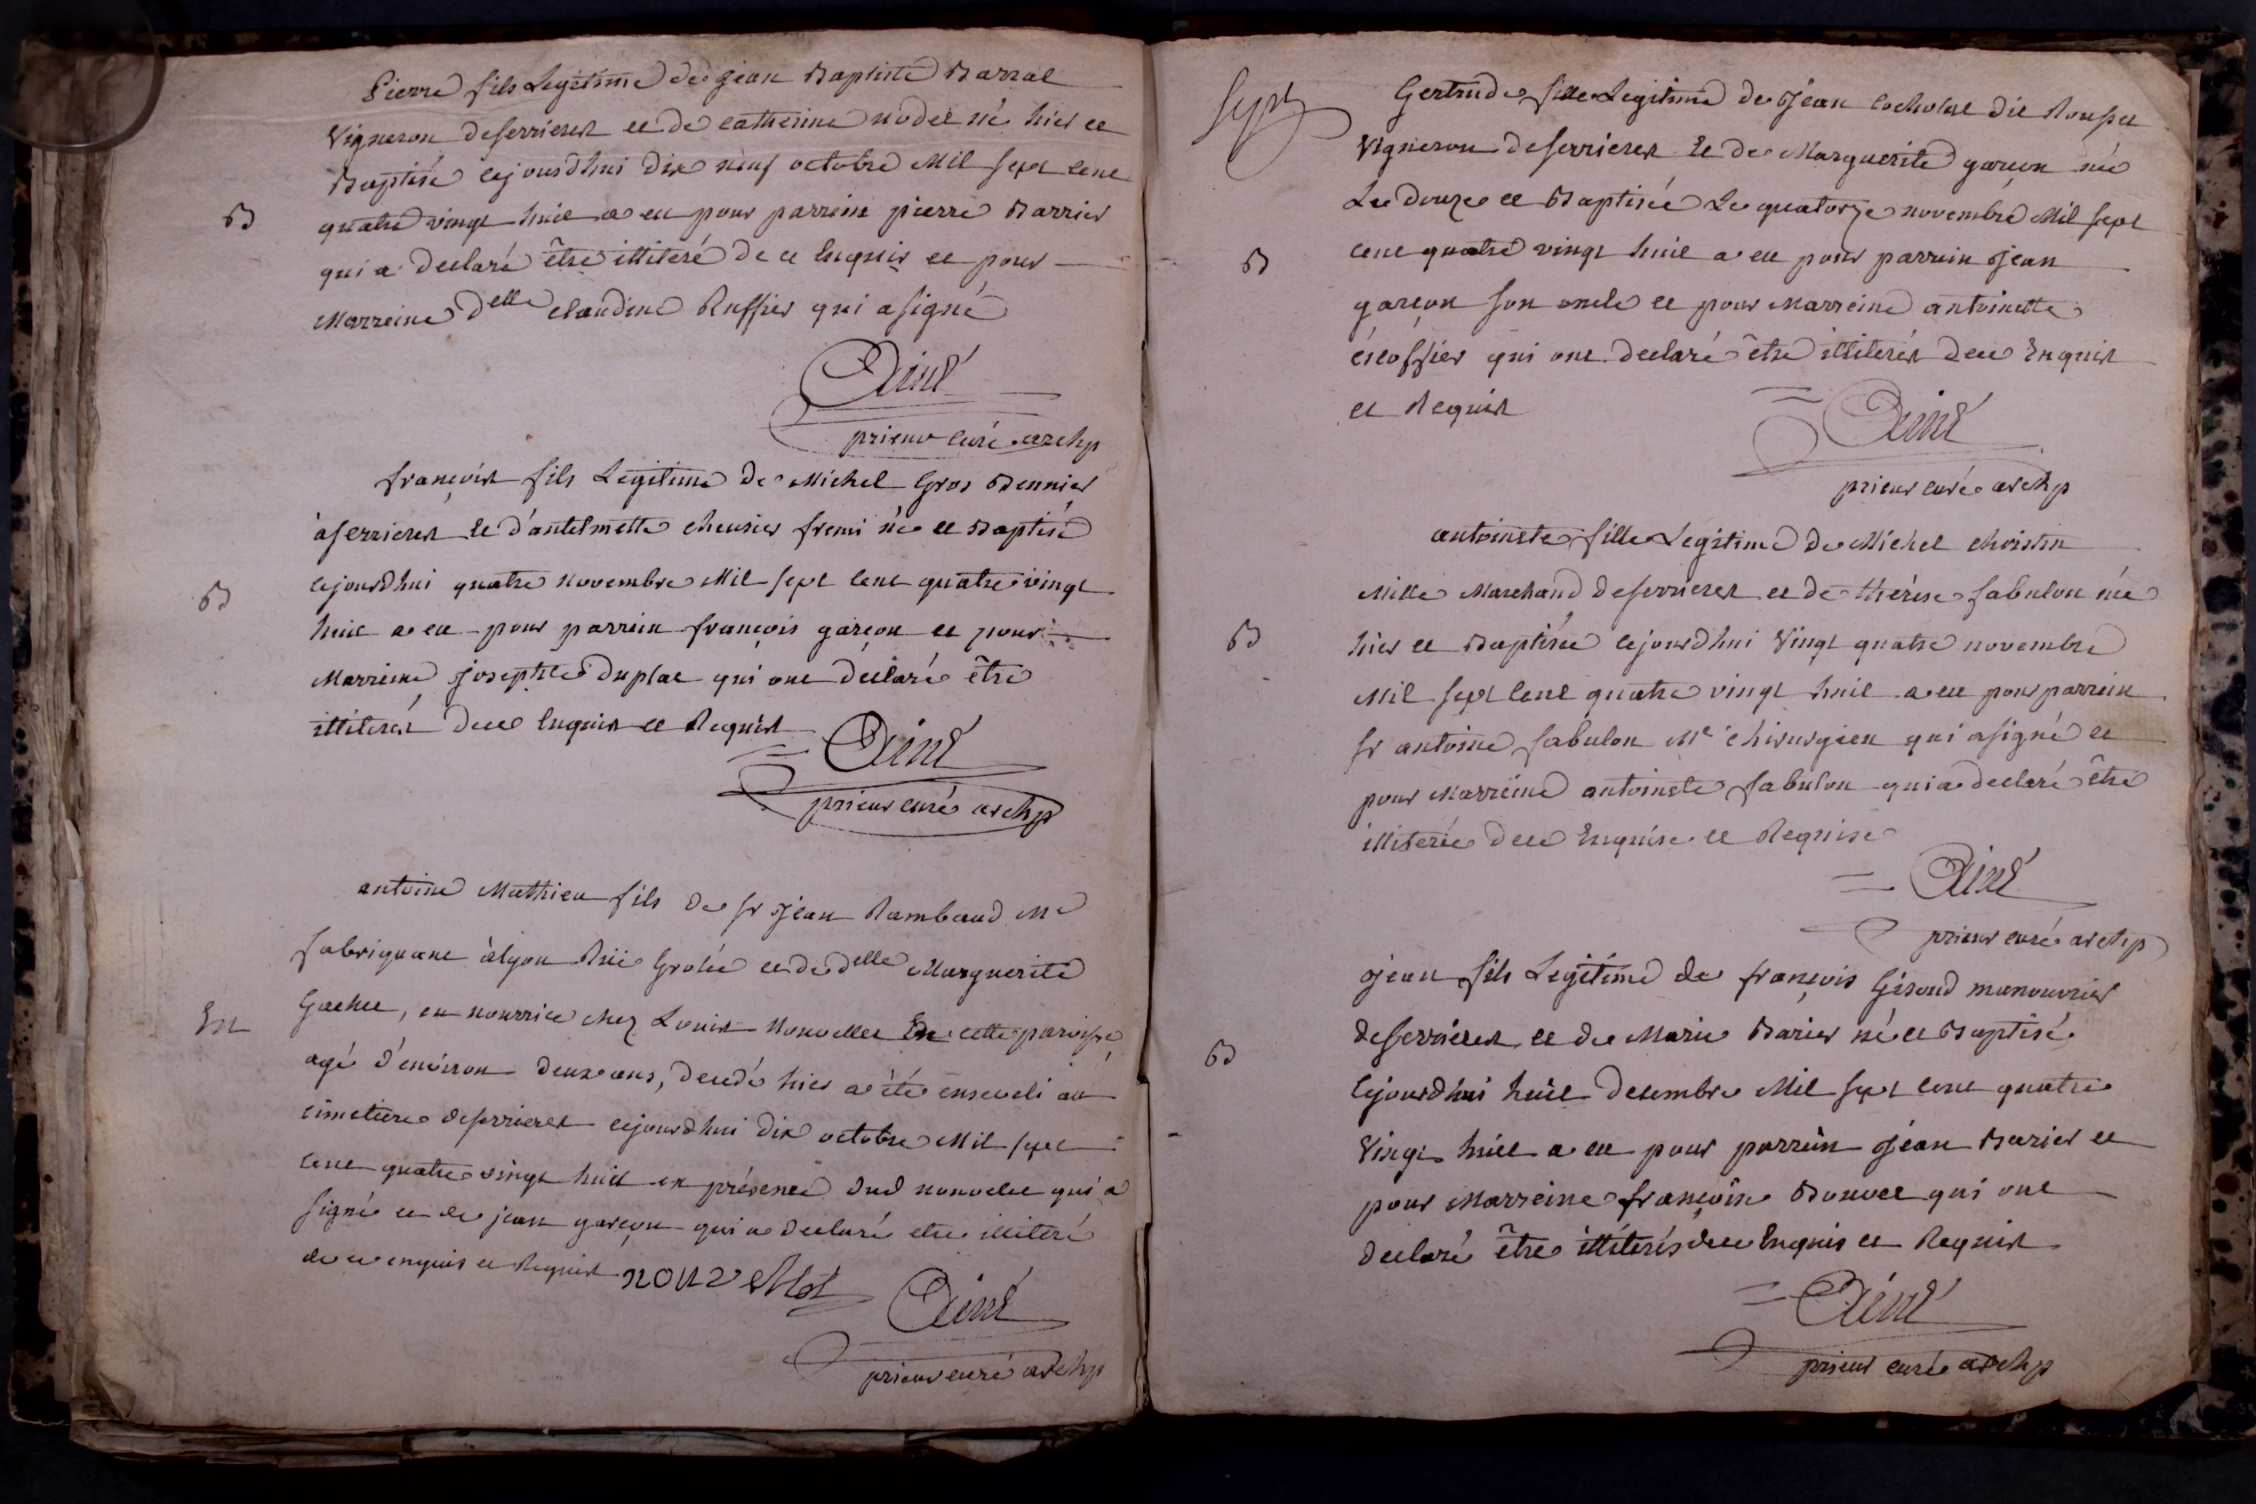 Pierre fils Legitime de jean Baptiste Barral
Vigneron deserrieres et de catherine nodet né hier et
Baptisé cejourdhui dix neuf octobre Mil sept cent
B
quatre vingt huit a eu pour parrein pierre Barrier
qui a declaré être illiteré de ce Enquis et pour
Marreine Delle claudine Ruffier qui a signé
Ainé
prieur curé archp
françois fils Legitime de Michel Gros Bennier
àserrieres et d'antelmette cheusier fremi né et Baptisé
cejourdhui quatre novembre Mil sept cent quatre vingt
B
huit a eu pour parrein françois garçon et pour
Marreine josephte duplat qui ont déclaré être
illiterés dece Enquis et Requis
Ainé
prieur curé archp
antoine Mathieu fils de sr jean Rambaud Me
fabriquant àlyon Rüe Grolée et de delle Marguerite
Gachet, en nourrice chez Louis Nouvellet De cette paroisse
En
agé d'environ deux ans, decedé hier a été enseveli au
cimetiere deserrieres cejourdhui dix octobre Mil sept
cent quatre vingt huit en présence dud nouvelet qui a
signé et de jean garçon qui a declaré etre illiteré
de ce enquis et Requis nouvellet
Ainé
prieur curé archp
sept
Gertrude fille Legitime de jean cocholat dit Rousset
Vigneron deserrieres Et de Marguerite garçon née
Le douze et Baptisée Le quatorze novembre Mil sept
B
cent quatre vingt huit a eu pour parrein jean
garçon son oncle et pour Marreine antoinette
écoffier qui ont declaré être illiterés dece Enquis
et Requis
Ainé
prieur curé archp
antoinete fille Legitime de Michel christin
Mille Marchand deserrieres et de thérèse sabulon née
B
hier et Baptisée cejourdhui Vingt quatre novembre
Mil sept cent quatre vingt huit a eu pour parrein
sr antoine sabulon Me chirurgien qui asigné et
pour Marreine antoinete sabulon qui a declaré être
illiterée dece Enquise et Requise
Ainé
prieur curé archp
jean fils Legitime de françois Giroud manouvrier
deserrieres et de Marie Barier né et Baptisé
B
cejourdhui huit decembre Mil sept cent quatre
Vingt huit a eu pour parrein jean Barier et
pour Marreine françoise Bouvet qui ont
declaré être illiterés dece Enquis et Requis
Ainé
prieur curé archp